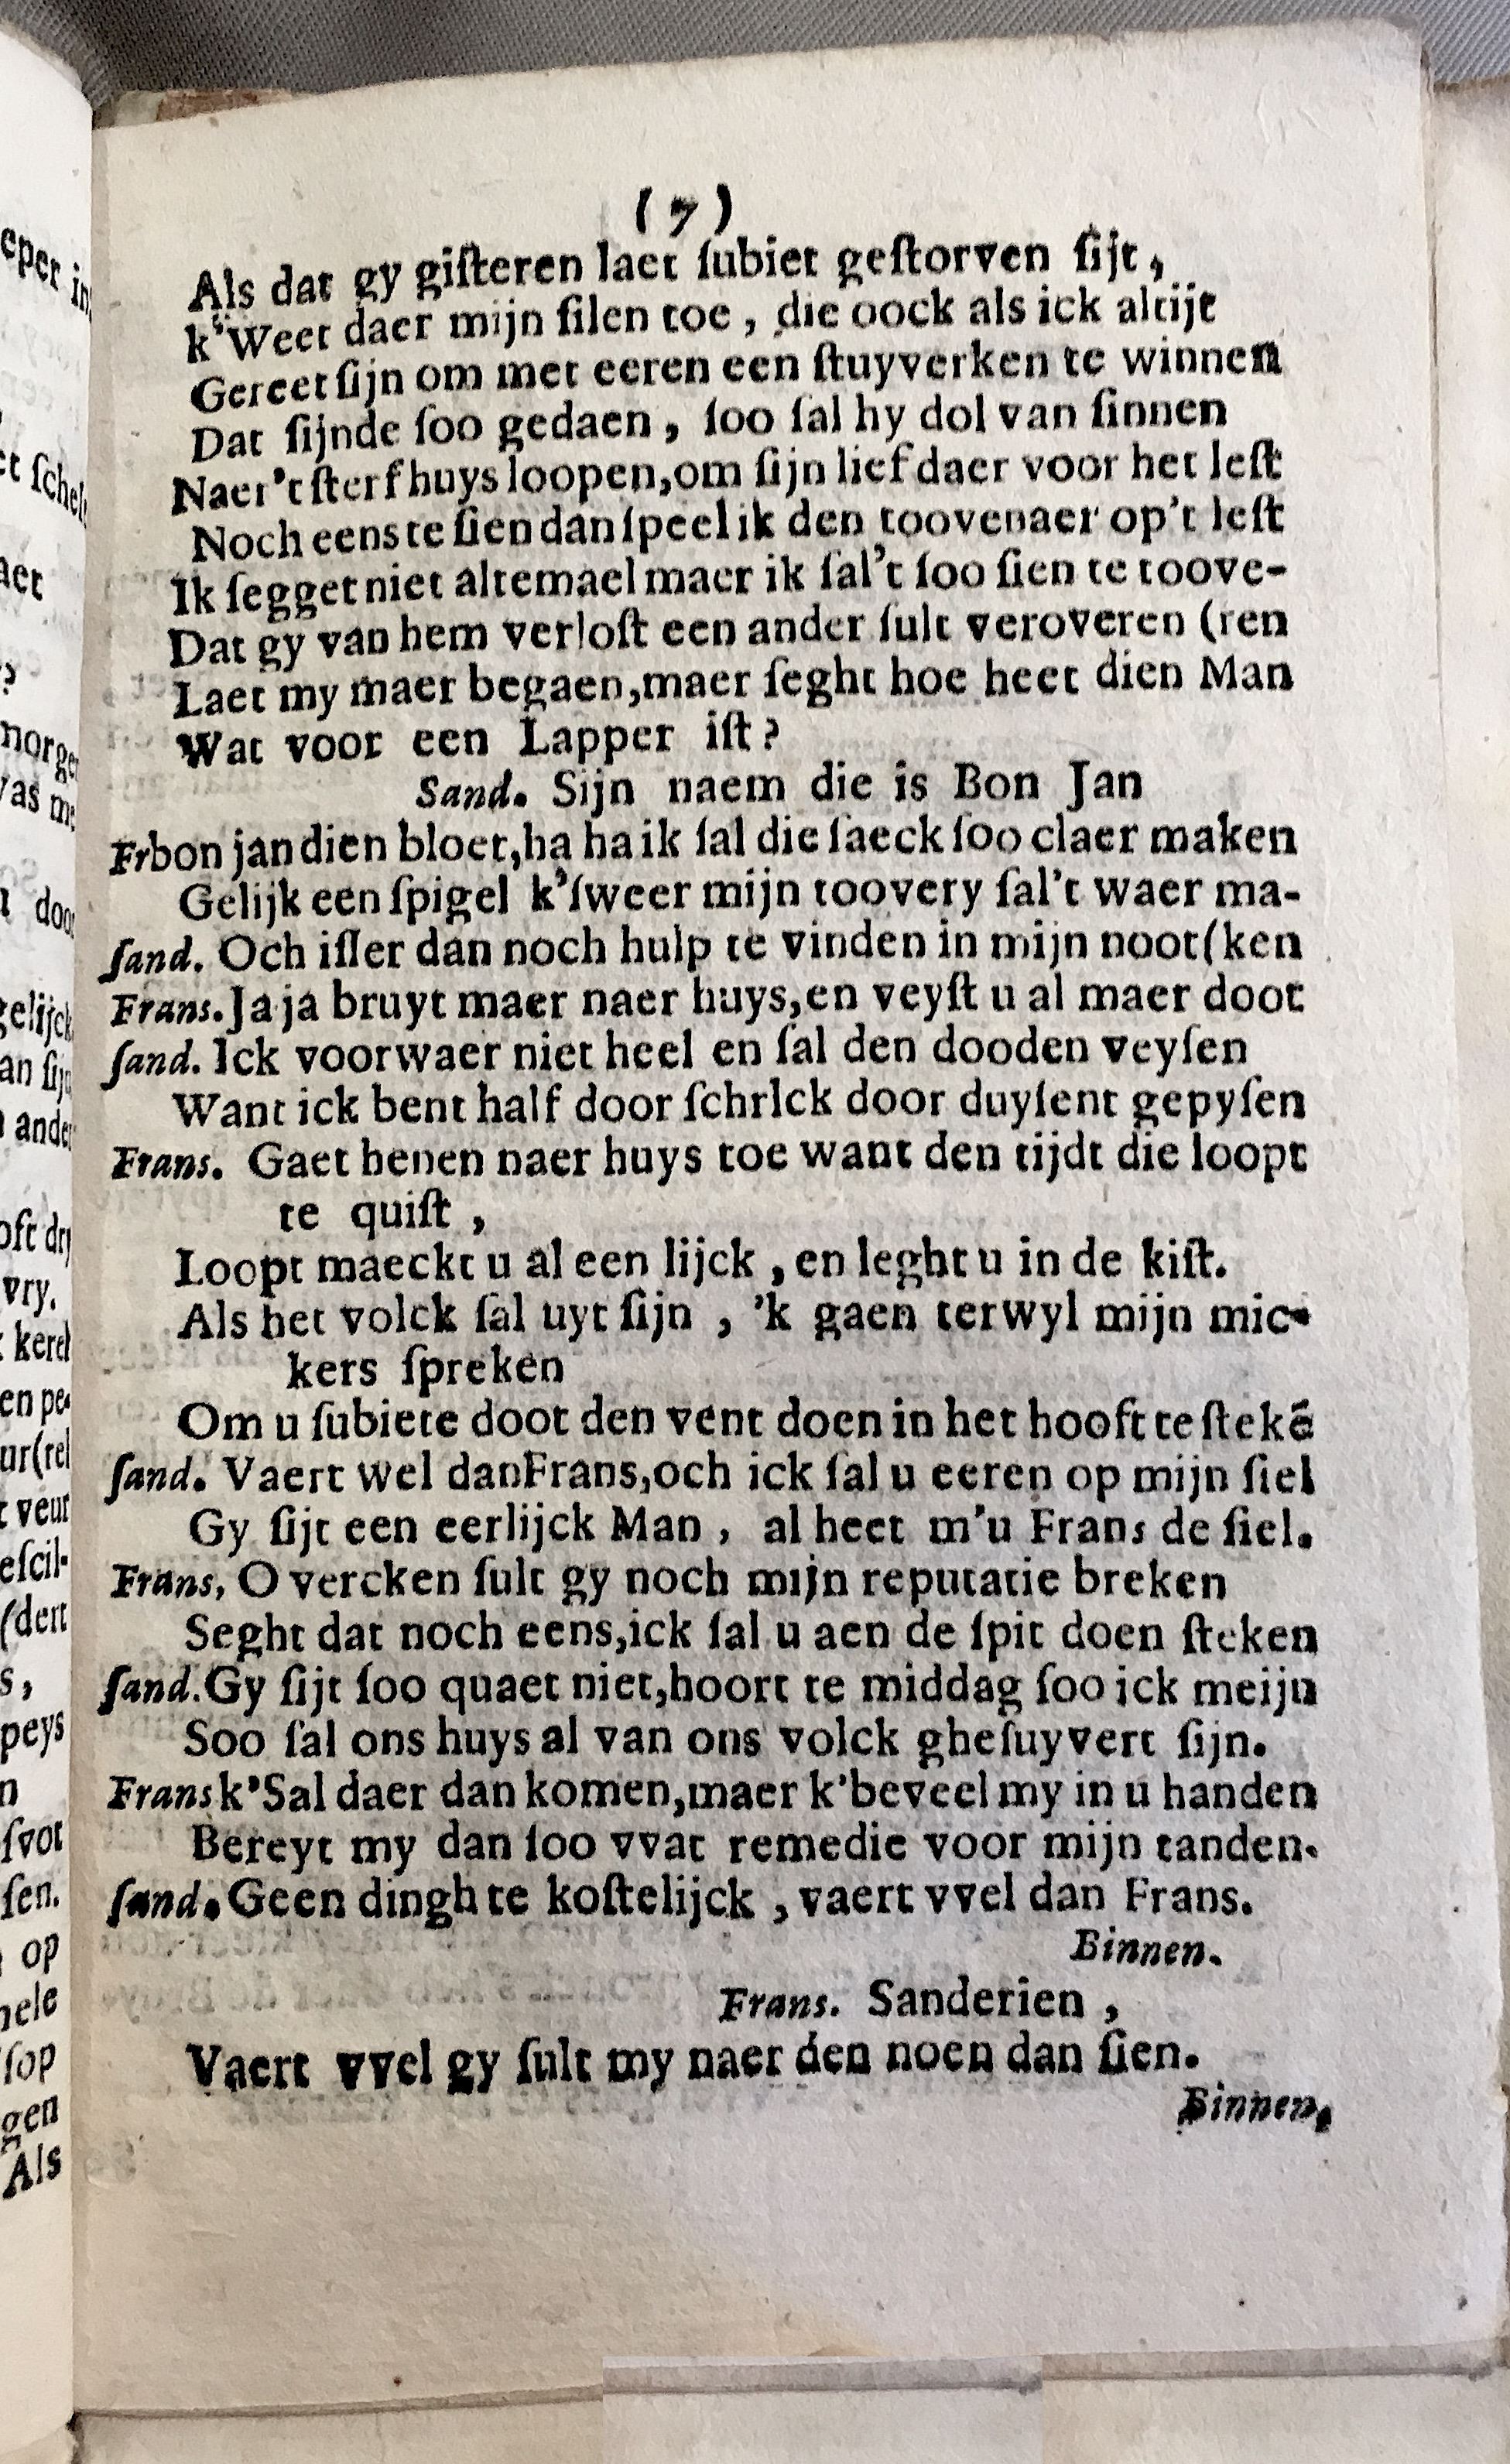 (7)
Als dat gy giſteren laet ſubiet geſtorven ſijt,
k'Weet daer mijn ſilen toe, die oock als ick altijt
Gereet ſijn om met eeren een ſtuyverken te winnen
Dat ſijnde ſoo gedaen, ſoo ſal hy dol van ſinnen
Naer't ſterfhuys loopen,om ſijn lief daer voor het leſt
Noch eens te ſien dan ſpeel ik den toovenaer op't leſt
Ik ſegget niet altemael maer ik ſal't ſoo ſien te toove-
Dat gy van hem verloſt een ander ſult veroveren (ren
Laet my maer begaen,maer ſeght hoe heet dien Man
Wat voor een Lapper iſt?
Sand. Sijn naem die is Bon Jan
Fr bon jan dien bloet,ha ha ik ſal die ſaeck ſoo claer maken
Gelijk een ſpigel k'ſweer mijn toovery ſal't waer ma-
ſand. Och iſſer dan noch hulp te vinden in mijn noot(ken
Frans. Ja ja bruyt maer naer huys,en veyſt u al maer doot
ſand. Ick voorwaer niet heel en ſal den dooden veyſen
Want ick bent half door ſchrIck door duyſent gepyſen
Frans. Gaet henen naer huys toe want den tijdt die loopt
te quiſt,
Loopt maeckt u al een lijck, en leght u in de kiſt.
Als het volck ſal uyt ſijn, 'k gaen terwyl mijn mic-
kers ſpreken
Om u ſubiete doot den vent doen in het hooft te ſtekē
ſand. Vaert wel dan Frans,och ick ſal u eeren op mijn ſiel
Gy ſijt een eerlijck Man, al heet m'u Frans de ſiel.
Frans, O vercken ſult gy noch mijn reputatie breken
Seght dat noch eens,ick ſal u aen de ſpit doen ſteken
ſand. Gy ſijt ſoo quaet niet,hoort te middag ſoo ick meijn
Soo ſal ons huys al van ons volck gheſuyvert ſijn.
Frans k'Sal daer dan komen,maer k'beveel my in u handen
Bereyt my dan ſoo vvat remedie voor mijn tanden.
ſand. Geen dingh te koſtelijck, vaert vvel dan Frans.
Binnen.
Frans. Sanderien,
Vaert vvel gy ſult my naer den noen dan ſien.
Binnen.